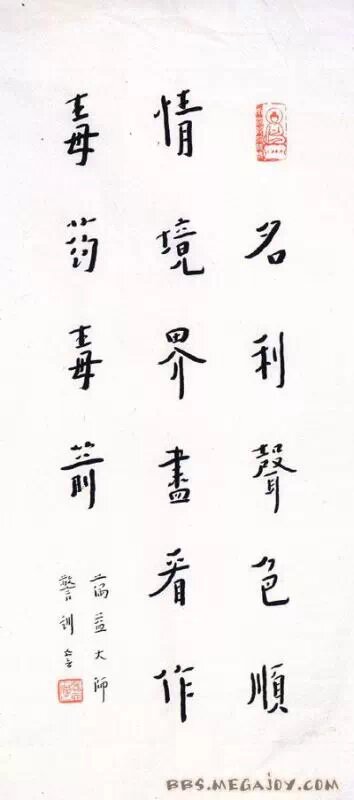 名利聲色順
情境界盡看作
毒葯毒箭
蕅益大師
警訓
BBS.MEGAJOY.COM